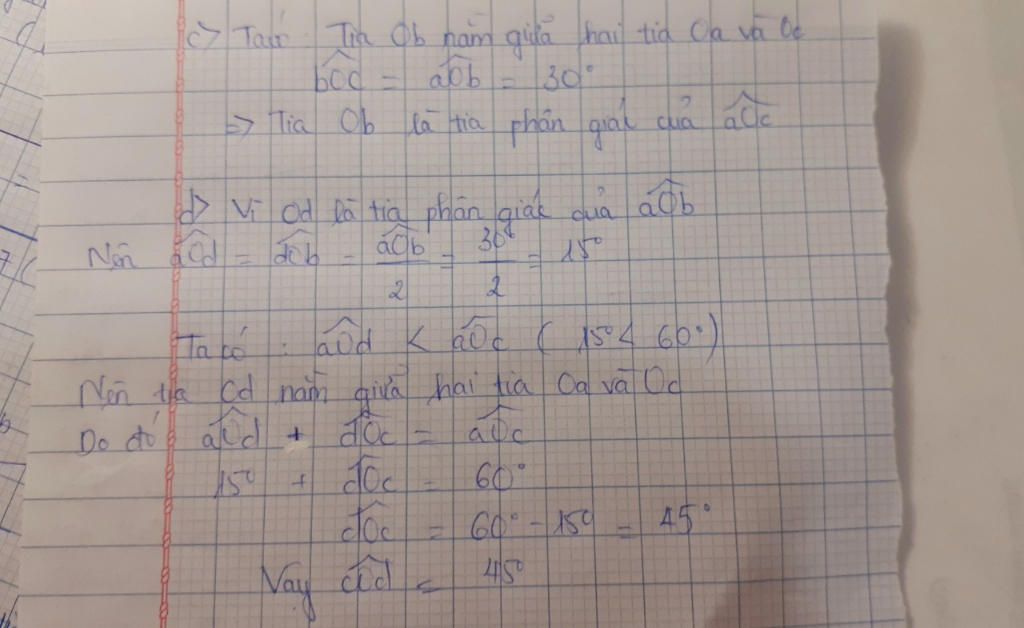 c> Ta có: Tia Ob nằm giữa hai tia Oa và Oc
bOc = aOb = 30°
=> Tia Ob là tia phân giác của aOc
d> Vì Od là tia phân giác của aOb
Nên aOd = dOb = aOb/2 = 30°/2 = 15°
Ta có : aOd < aOc ( 15° < 60°)
Nên tia Od nằm giữa hai tia Oa và Oc
Do đó aOd + dOc = aOc
15° + dOc = 60°
dOc = 60° - 15° = 45°
Vậy cOd = 45°